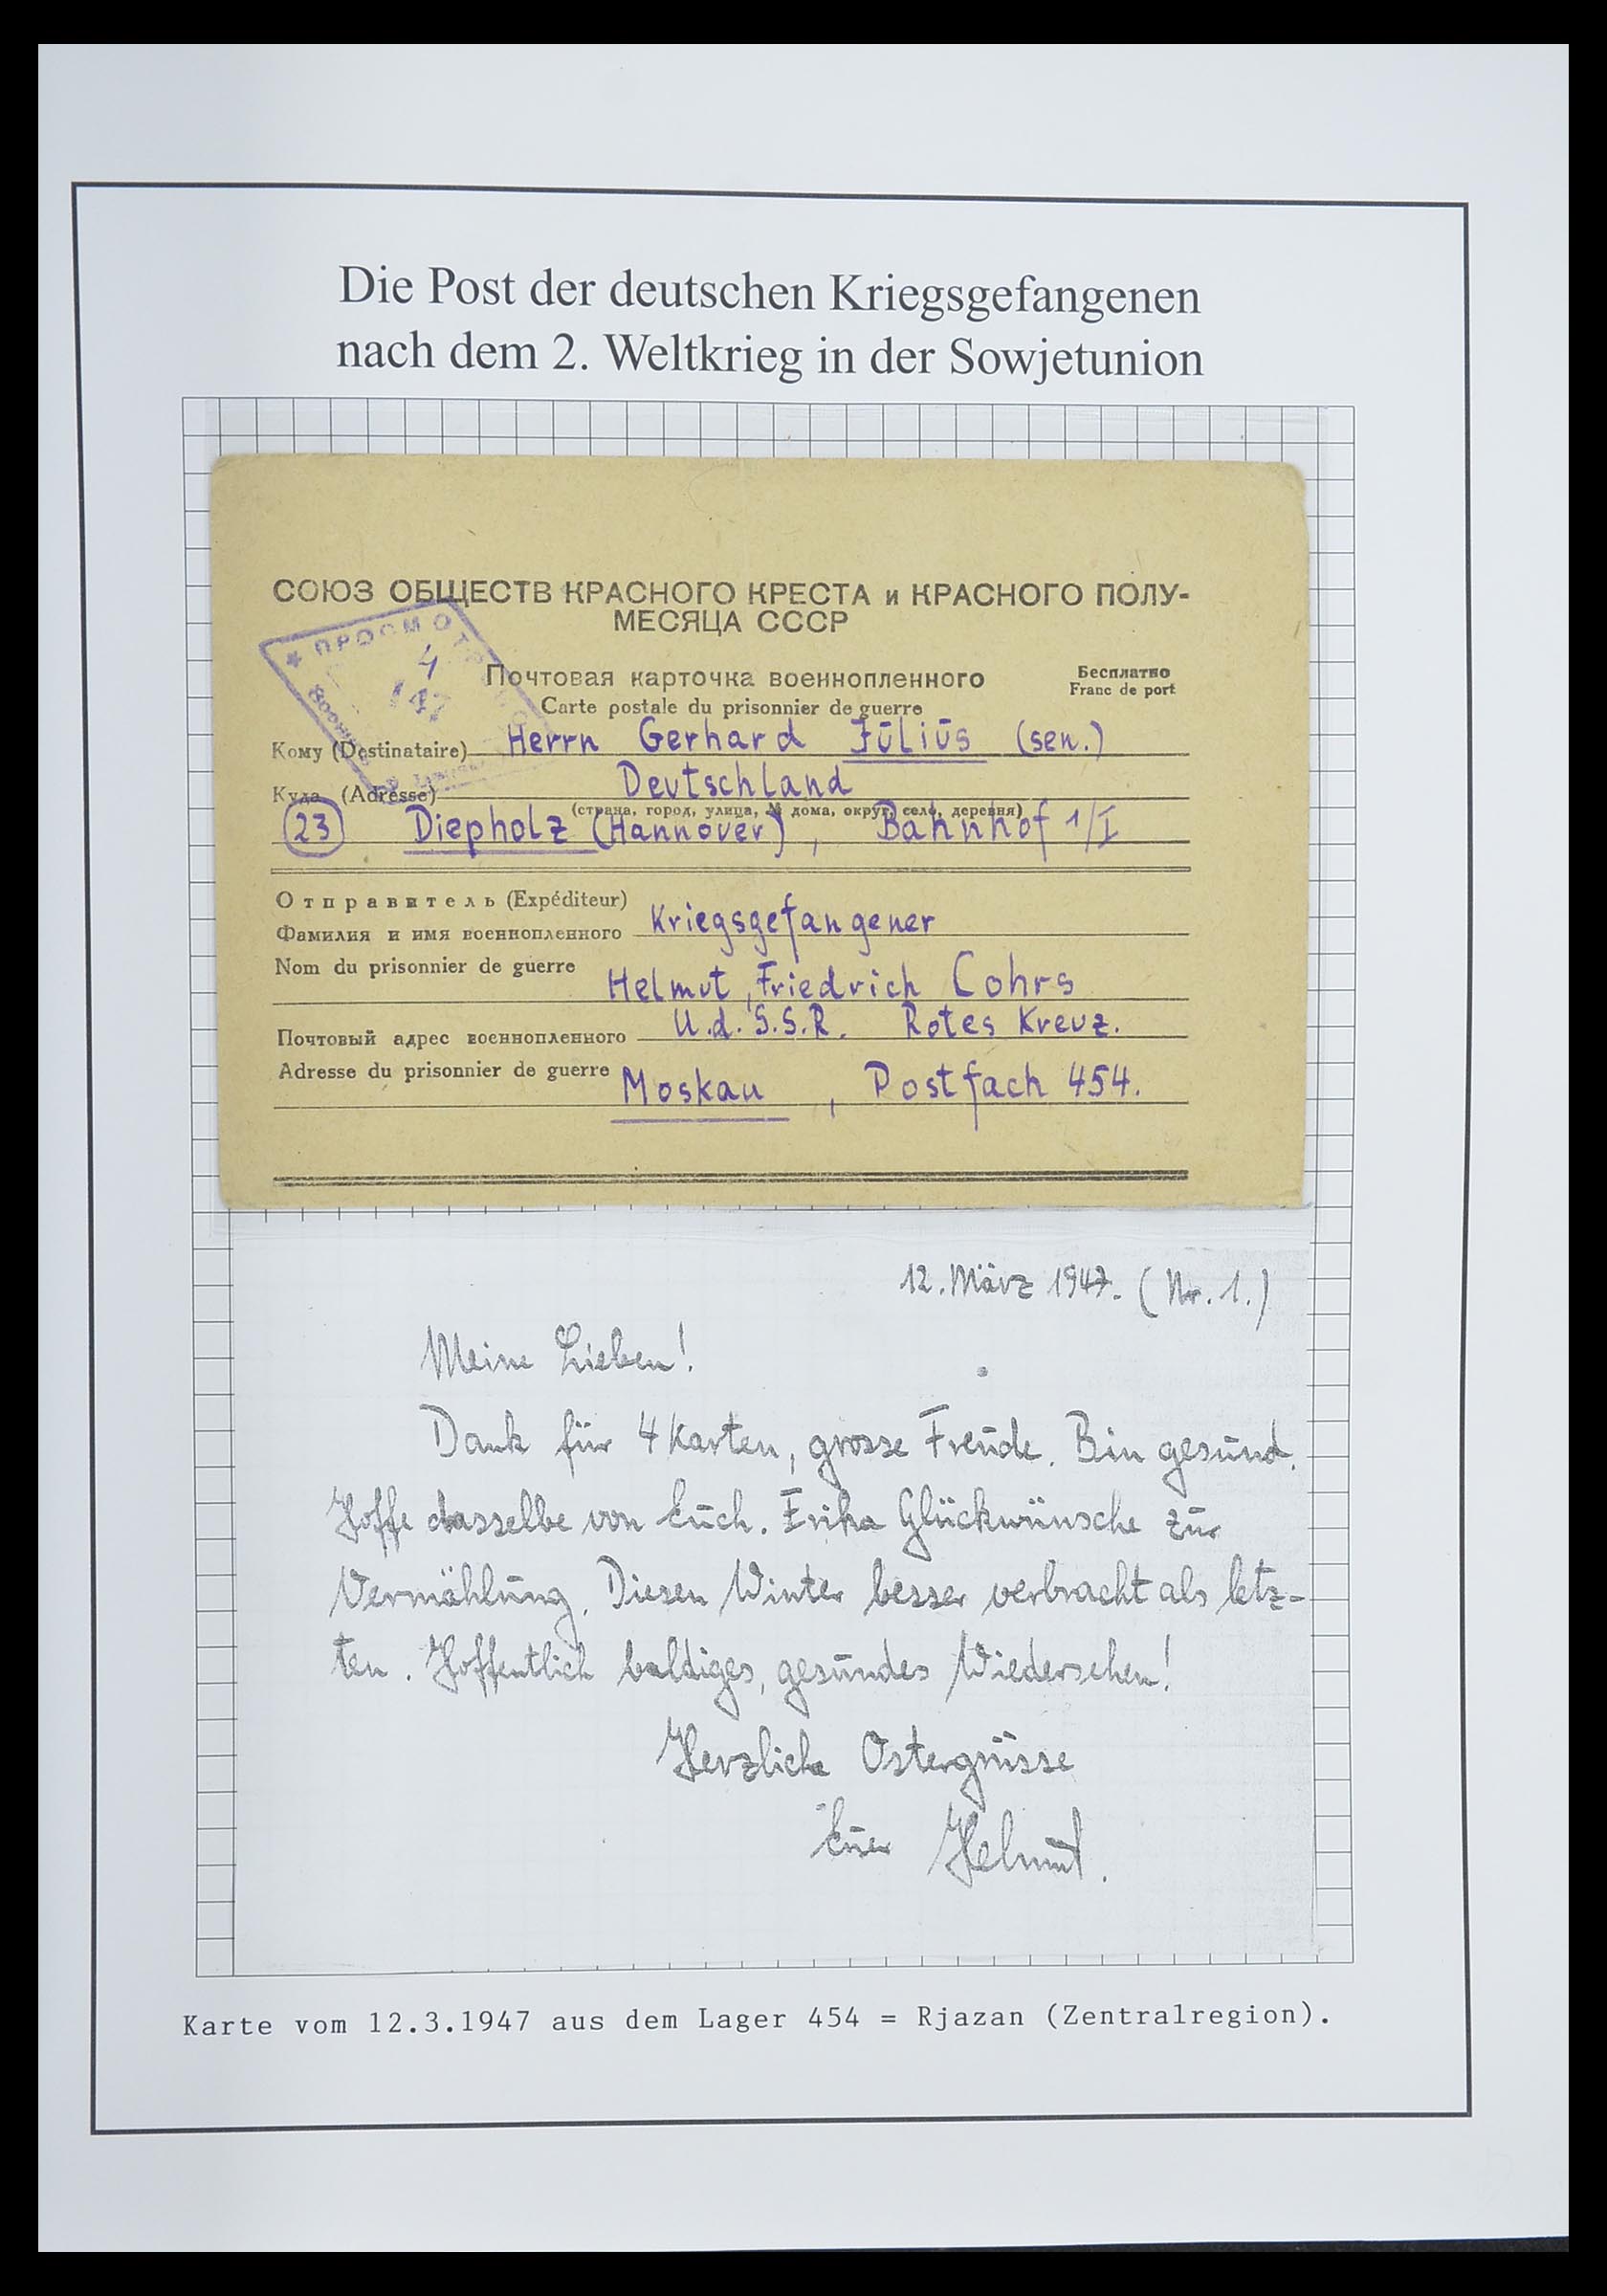 Die Post der deutschen Kriegsgefangenen
nach dem 2. Weltkrieg in der Sowjetunion
СОЮЗ ОБЩЕСТВ КРАСНОГО КРЕСТА и КРАСНОГО ПОЛУ-
МЕСЯЦА СССР
★ ПРОСМОТР
4
147
Почтовая карточка военнопленного
Бесплатно
Carte postale du prisonnier de guerre
Franc de port
Кому (Destinataire) Herrn Gerhard Jūliūs (sen.)
Куда (Adresse) Deutschland
(страна, город, улица, № дома, округ, село, деревня)
23 Diepholz (Hannover), Bahnhof 1/I
Отправитель (Expéditeur)
Фамилия и имя военнопленного Kriegsgefangener
Nom du prisonnier de guerre Helmut, Friedrich Cohrs
Почтовый адрес военнопленного U.d.S.S.R. Rotes Kreuz.
Adresse du prisonnier de guerre Moskau, Postfach 454.
12. März 1947. (Nr. 1.)
Meine Lieben!
Dank für 4 Karten, grosse Freūde. Bin gesūnd.
Hoffe dasselbe von Eūch. Erika Glückwünsche zūr
Vermählūng. Diesen Winter besser verbracht als letz-
ten. Hoffentlich baldiges, gesūndes Wiedersehen!
Herzliche Ostergrüsse
Eūer Helmūt.
Karte vom 12.3.1947 aus dem Lager 454 = Rjazan (Zentralregion).